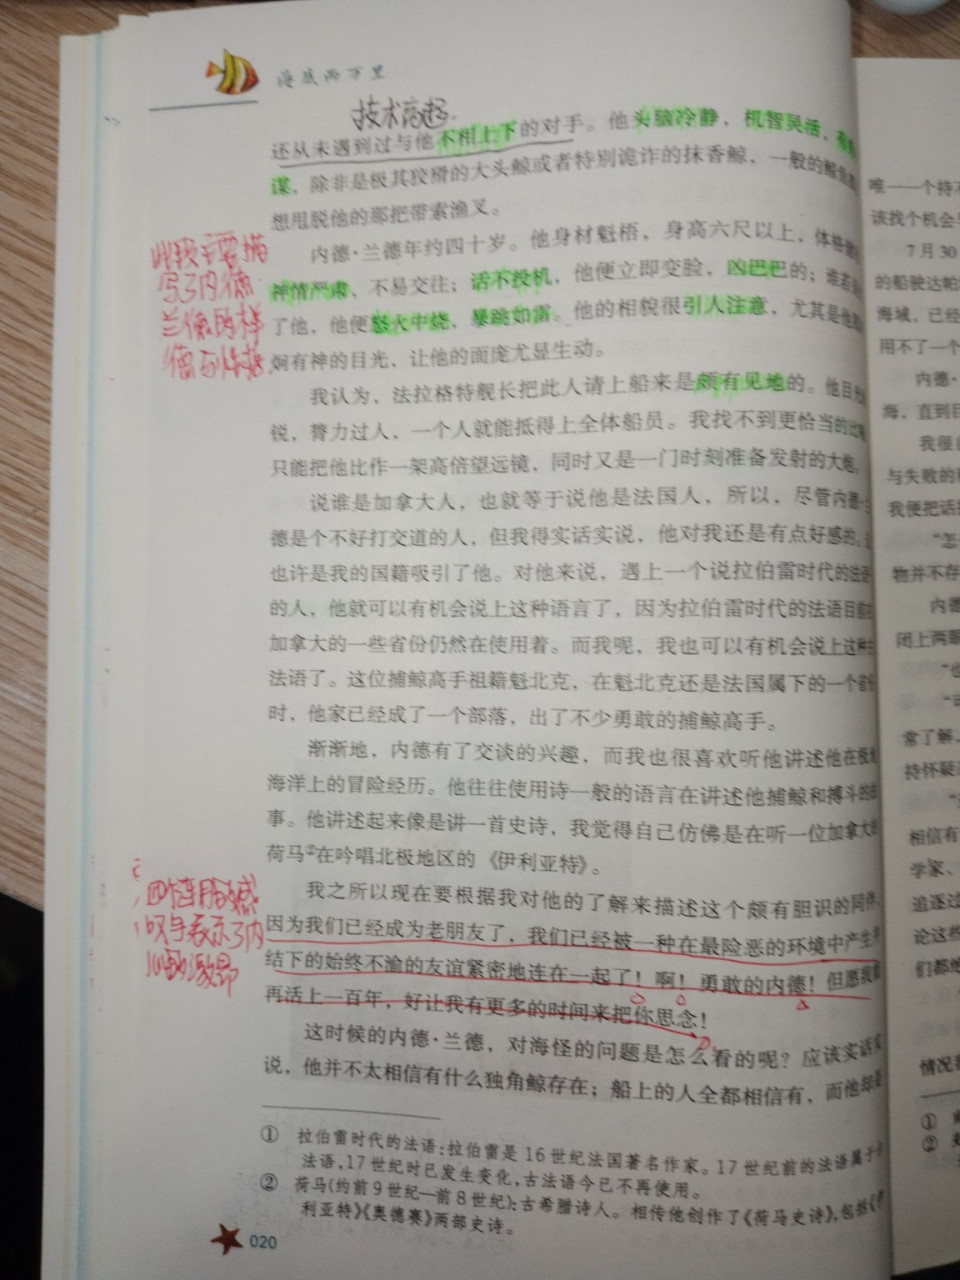 海底两万里
技术高超.
还从未遇到过与他不相上下的对手。他头脑冷静、机智灵活,有
谋,除非是极其狡猾的大头鲸或者特别诡诈的抹香鲸,一般的鲸鱼
想甩脱他的那把带索渔叉。
此段主要描
写了内德·
兰德的样
德与性格
内德·兰德年约四十岁。他身材魁梧,身高六尺以上,体格
神情严肃、不易交往;话不投机,他便立即变脸,凶巴巴的;谁若
了他,他便怒火中烧,暴跳如雷。他的相貌很引人注意,尤其是他
炯有神的目光,让他的面庞尤显生动。
我认为,法拉格特舰长把此人请上船来是颇有见地的。他目光
锐,膂力过人,一个人就能抵得上全体船员。我找不到更恰当的比
只能把他比作一架高倍望远镜,同时又是一门时刻准备发射的大炮。
说谁是加拿大人,也就等于说他是法国人,所以,尽管内德·兰
德是个不好打交道的人,但我得实话实说,他对我还是有点好感的。
也许是我的国籍吸引了他。对他来说,遇上一个说拉伯雷时代的法语
的人,他就可以有机会说上这种语言了,因为拉伯雷时代的法语目前在
加拿大的一些省份仍然在使用着。而我呢,我也可以有机会说上这种
法语了。这位捕鲸高手祖籍魁北克,在魁北克还是法国属下的一个省份
时,他家已经成了一个部落,出了不少勇敢的捕鲸高手。
渐渐地,内德有了交谈的兴趣,而我也很喜欢听他讲述他在极地
海洋上的冒险经历。他往往使用诗一般的语言在讲述他捕鲸和搏斗的故
事。他讲述起来像是讲一首史诗,我觉得自己仿佛是在听一位加拿大的
荷马②在吟唱北极地区的《伊利亚特》。
四个连用的感
叹号表示了内
心的激昂
我之所以现在要根据我对他的了解来描述这个颇有胆识的同伴,
因为我们已经成为老朋友了,我们已经被一种在最险恶的环境中产生
结下的始终不渝的友谊紧密地连在一起了!啊!勇敢的内德!但愿我能
再活上一百年,好让我有更多的时间来把你思念!
这时候的内德·兰德,对海怪的问题是怎么看的呢?应该实话实
说,他并不太相信有什么独角鲸存在;船上的人全都相信有,而他却
① 拉伯雷时代的法语:拉伯雷是16世纪法国著名作家。17世纪前的法语属于
法语,17世纪时已发生变化,古法语今已不再使用。
② 荷马(约前9世纪—前8世纪):古希腊诗人。相传他创作了《荷马史诗》,包括《伊
利亚特》《奥德赛》两部史诗。
020
唯一一个持不
该找个机会
7月30
的船驶达帕
海域,已经
用不了一个
内德·
海,直到目
我很
与失败的
我便把话
“怎
物并不存
内德
闭上两眼
“也
“可
常了解,
持怀疑
相信有
学家、
追逐过
论这些
们都
情况
①
②